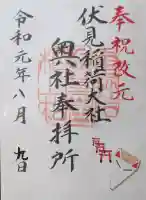 奉祝改元
伏見稲荷大社
奥社奉拝所
令和元年八月
九日